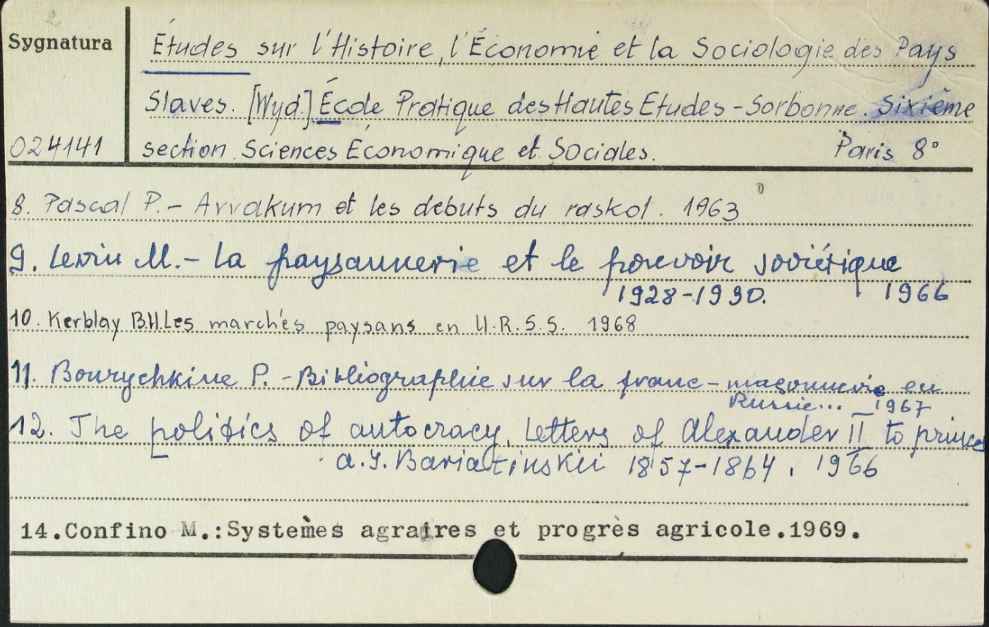 Sygnatura
Études sur l'Histoire, l'Économie et la Sociologie des Pays
Slaves. [Wyd.] École Pratique des Hautes Etudes - Sorbonne. Sixième
024141
section Sciences Économique et Sociales. Paris 8°
8. Pascal P. - Avvakum et les debuts du raskol. 1963
9. Lewin M. - La paysannerie et le pouvoir soviétique
1928-1930. 1966
10. Kerblay B.H. Les marchés paysans en U.R.S.S. 1968
11. Bourychkine P. - Bibliographie sur la franc-maçonnerie en
Russie... 1967
12. The politics of autocracy. Letters of Alexander II to prince
A.I. Bariatinskii 1857-1864. 1966
14.Confino M.:Systemès agraires et progrès agricole.1969.